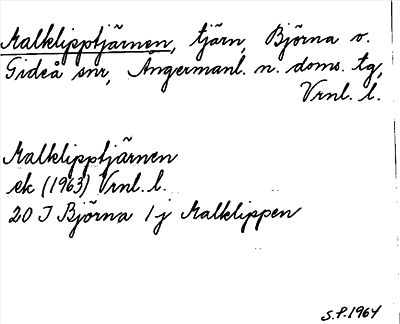 Malklipptjärnen, tjärn, Björna o.
Gideå snr, Ångermanl. n. doms. tg,
Vrnl. l.
Malklipptjärnen
ek (1963) Vrnl. l.
20 I Björna 1 j Malklippen
S.P. 1964